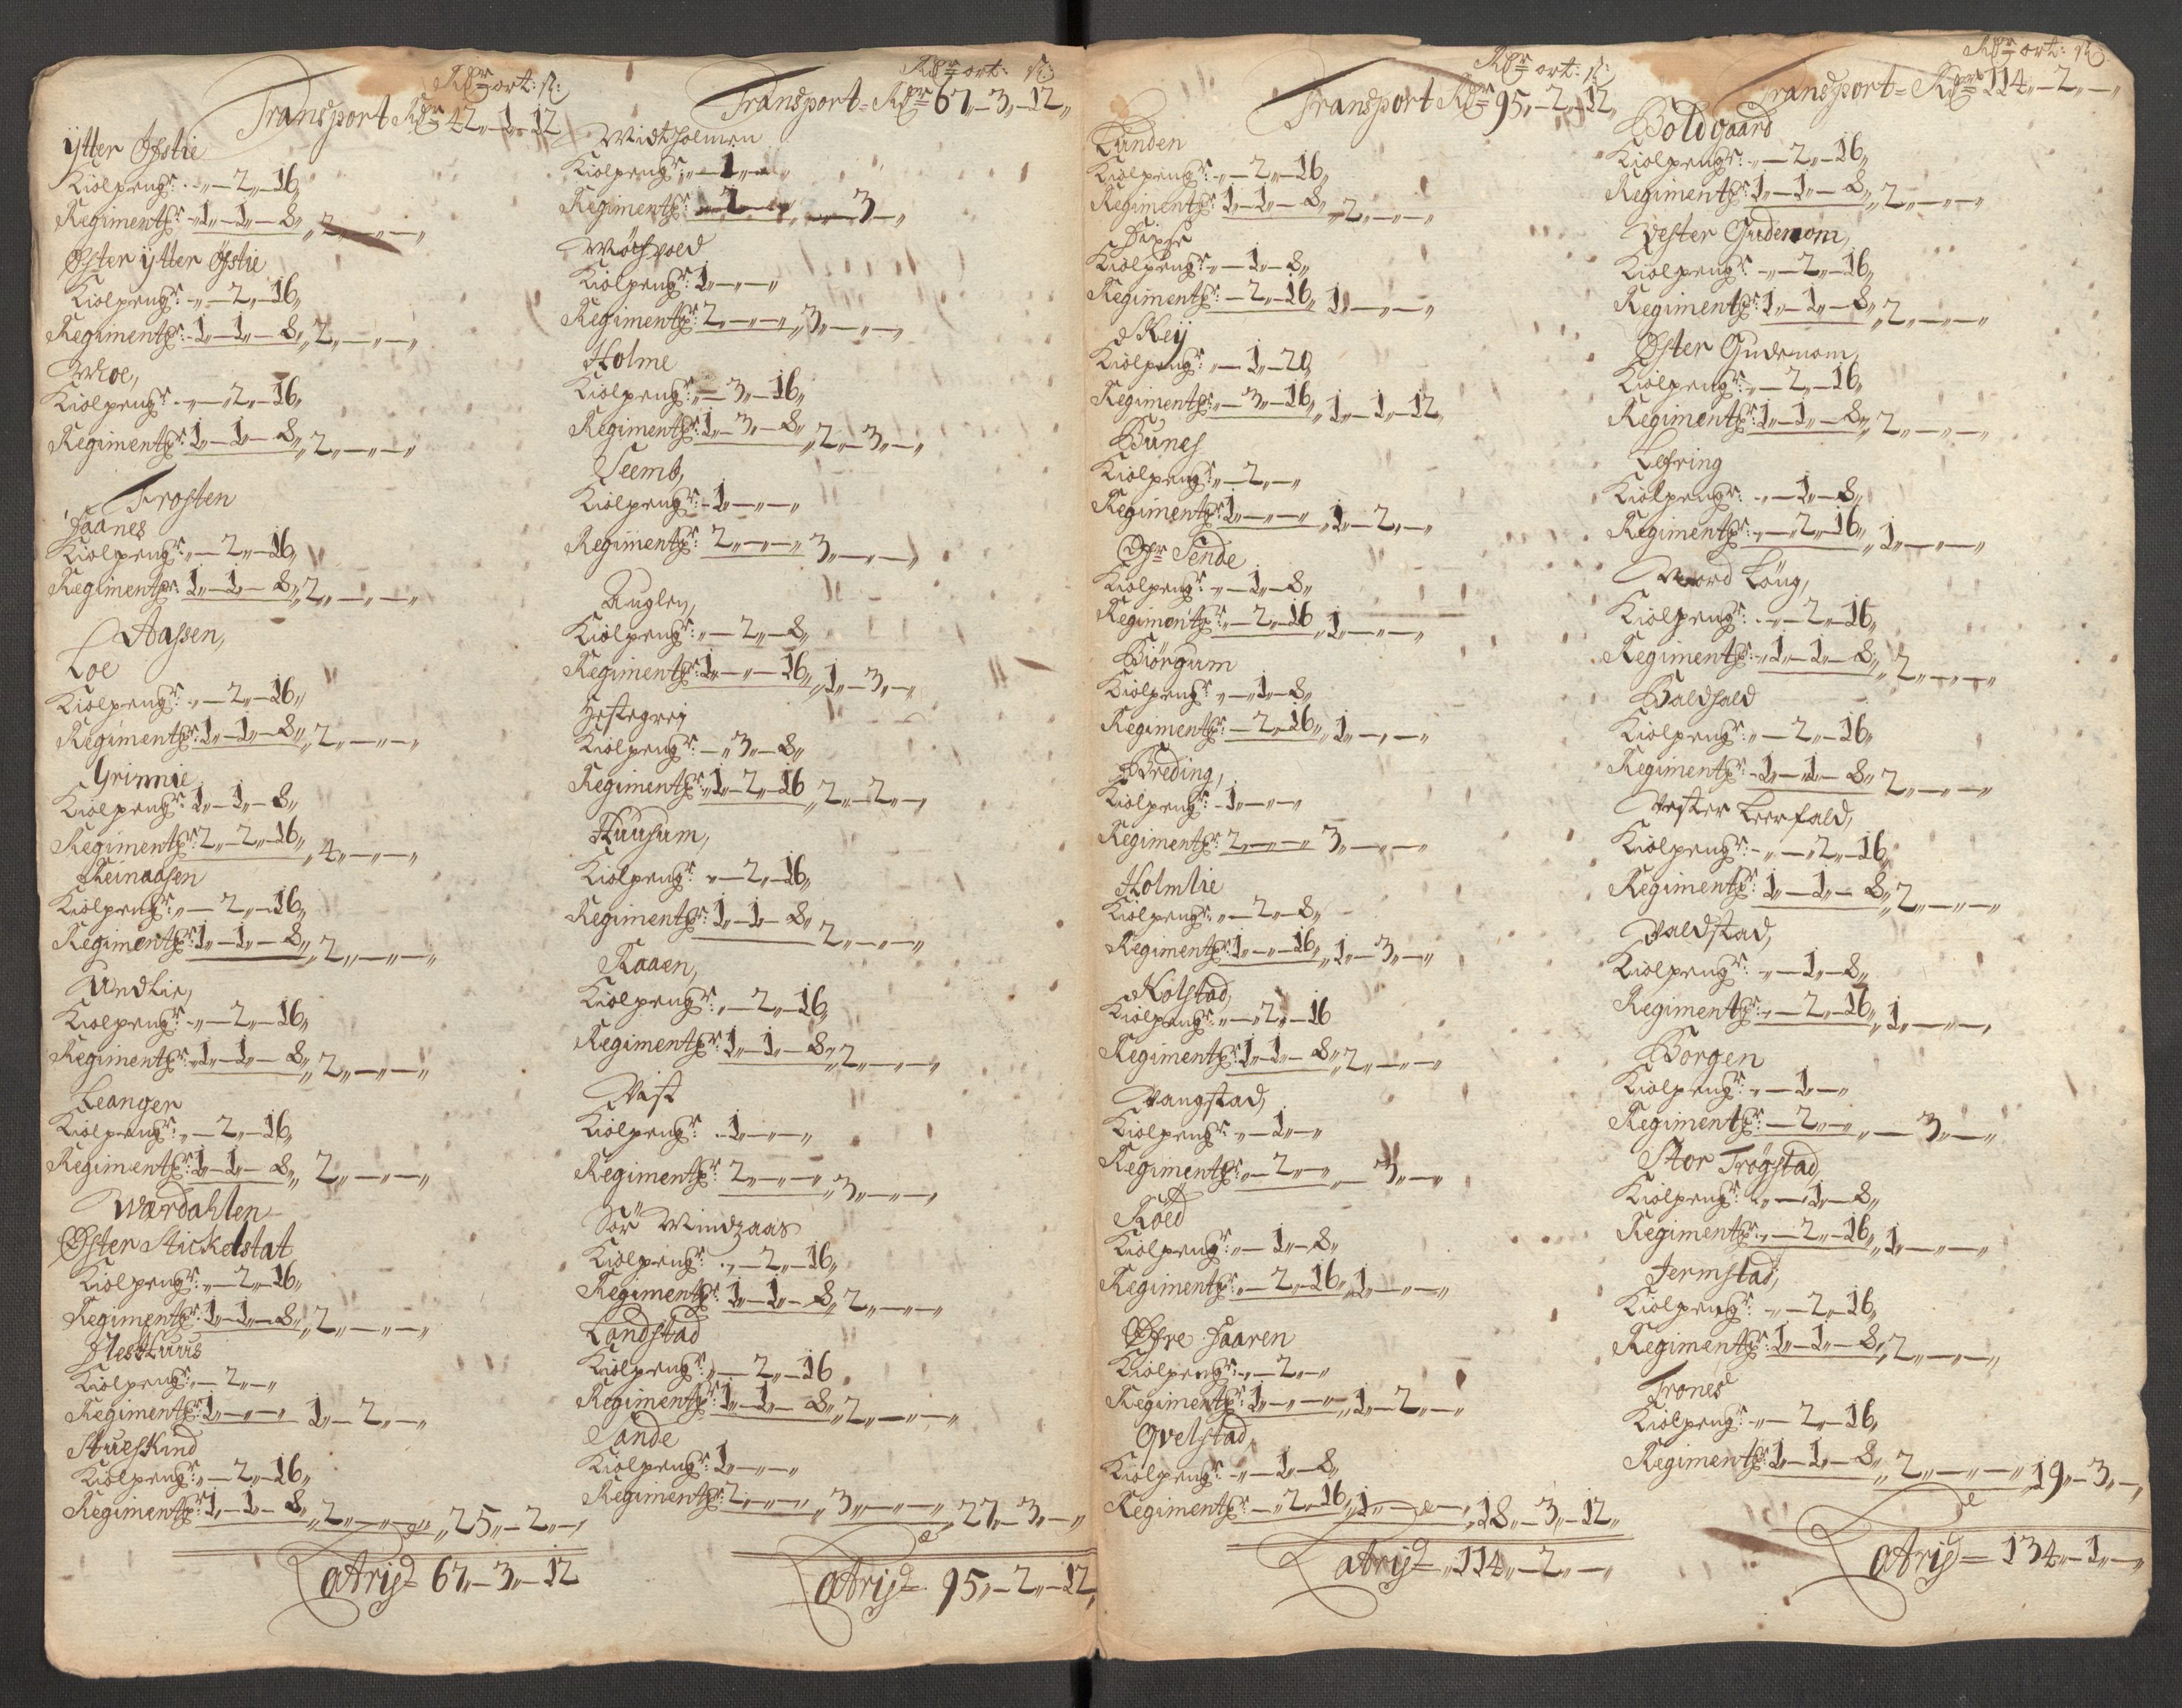 Rdr ort: s:
Transport Rdr 42„–1„–12
Ytter Øfstie
Kiolpengr: „–2„–16„
Regimentpr: 1„–1„–8„ 2„–„–„
Øfter ytter Øfstie
Kiolpengr: „–2„–16„
Regimentpr: 1„–1„–8„ 2„–„–„
Moe,
Kiolpengr: „–2„–16„
Regimentpr: 1„–1„–8„ 2„–„–„
Frosten
Faanes
Kiolpengr: „–2„–16„
Regimentpr: 1„–1„–8„ 2„–„–„
Aassen,
Loe
Kiolpengr: „–2„–16„
Regimentpr: 1„–1„–8„ 2„–„–„
Grinnie
Kiolpengr: 1„–1„–8„
Regimentpr: 2„–2„–16„ 4„–„–„
Reinaasen
Kiolpengr: „–2„–16„
Regimentpr: 1„–1„–8„ 2„–„–„
Undlie,
Kiolpengr: „–2„–16„
Regimentpr: 1„–1„–8„ 2„–„–„
Leanger
Kiolpengr: „–2„–16„
Regimentpr: 1„–1„–8„ 2„–„–„
Wærdahlen
Øster Stickelstat
Kiolpengr: „–2„–16„
Regimentpr: 1„–1„–8„ 2„–„–„
Flesthuus
Kiolpengr: „–2„–„
Regimentpr: 1„–„–„ 1„–2„–„
Stueskind
Kiolpengr: „–2„–16„
Regimentpr: 1„–1„–8„ 2„–„–„ 25„–2„–„
Latris 67„–3„–12
Rdr ort: s:
Transport Rdr 67„–3„–12„
Midtholmen
Kiolpengr: „–1„–„
Regimentpr: „–2„–„ „–3„–„
Möchvold
Kiolpengr: 1„–„–„
Regimentpr: 2„–„–„ 3„–„–„
Holme
Kiolpengr: „–3„–16„
Regimentpr: 1„–3„–8„ 2„–3„–„
Seemb,
Kiolpengr: 1„–„–„
Regimentpr: 2„–„–„ 3„–„–„
Auglen,
Kiolpengr: „–2„–8„
Regimentpr: 1„–„–16„ 1„–3„–„
Hestegrei
Kiolpengr: „–3„–8„
Regimentpr: 1„–2„–16 2„–2„–„
Huusum,
Kiolpengr: „–2„–16„
Regimentpr: 1„–1„–8„ 2„–„–„
Raaen,
Kiolpengr: „–2„–16„
Regimentpr: 1„–1„–8„ 2„–„–„
Vist
Kiolpengr: 1„–„–„
Regimentpr: 2„–„–„ 3„–„–„
Sör Mindzaas
Kiolpengr: „–2„–16„
Regimentpr: 1„–1„–8„ 2„–„–„
Landstad
Kiolpengr: „–2„–16
Regimentpr: 1„–1„–8„ 2„–„–„
Sande
Kiolpengr: 1„–„–„
Regimentpr: 2„–„–„ 3„–„–„ 27„–3„–„
Latris 95„–2„–12„
Rdr ort: s:
Transport Rdr 95„–2„–12„
Lunden
Kiolpengr: „–2„–16„
Regimentpr: 1„–1„–8„ 2„–„–„
Kiolpengr: „–1„–8„
Regimentpr: „–2„–16„ 1„–„–„
Skey
Kiolpengr: „–1„–20
Regimentpr: „–3„–16„ 1„–1„–12„
Bunes
Kiolpengr: „–2„–„
Regimentpr: 1„–„–„ 1„–2„–„
Øfr Sende
Kiolpengr: „–1„–8„
Regimentpr: „–2„–16 1„–„–„
Biörgum
Kiolpengr: „–1„–8„
Regimentpr: „–2„–16„ 1„–„–„
Breding,
Kiolpengr: 1„–„–„
Regimentpr: 2„–„–„ 3„–„–„
Holmlie
Kiolpengr: „–2„–8„
Regimentpr: 1„–„–16„ 1„–3„–„
Kolstad,
Kiolpengr: „–2„–16
Regimentpr: 1„–1„–8„ 2„–„–„
Vangstad,
Kiolpengr: „–1„–„
Regimentpr: „–2„–„ „–3„–„
Röed
Kiolpengr: „–1„–8„
Regimentpr: „–2„–16„ 1„–„–„
Øfre Faaren
Kiolpengr: „–2„–„
Regimentpr: 1„–„–„ 1„–2„–„
Qvelstad,
Kiolpengr: „–1„–8„
Regimentpr: „–2„–16„ 1„–„–„ 18„–3„–12„
Latris 114„–2„–„
Rdr ort: s:
Transport Rdr 114„–2„–„
Boldgaard
Kiolpengr: „–2„–16„
Regimentpr: 1„–1„–8„ 2„–„–„
Vester Gudemom,
Kiolpengr: „–2„–16„
Regimentpr: 1„–1„–8„ 2„–„–„
Øster Gudemom,
Kiolpengr: „–2„–16„
Regimentpr: 1„–1„–8„ 2„–„–„
Lefring
Kiolpengr: „–1„–8„
Regimentpr: „–2„–16„ 1„–„–„
Nord Löng,
Kiolpengr: „–2„–16„
Regimentpr: 1„–1„–8„ 2„–„–„
Baldhald
Kiolpengr: „–2„–16„
Regimentpr: 1„–1„–8„ 2„–„–„
Vester Leerfald,
Kiolpengr: „–2„–16„
Regimentpr: 1„–1„–8„ 2„–„–„
Valdstad,
Kiolpengr: „–1„–8„
Regimentpr: „–2„–16„ 1„–„–„
Borgen
Kiolpengr: „–1„–„
Regimentpr: „–2„–„ „–3„–„
Stor Trögstad,
Kiolpengr: „–1„–8„
Regimentpr: „–2„–16„ 1„–„–„
Jermstad,
Kiolpengr: „–2„–16„
Regimentpr: 1„–1„–8„ 2„–„–„
Trones
Kiolpengr: „–2„–16„
Regimentpr: 1„–1„–8„ 2„–„–„ 19„–3„–„
Latris 134„–1„–„